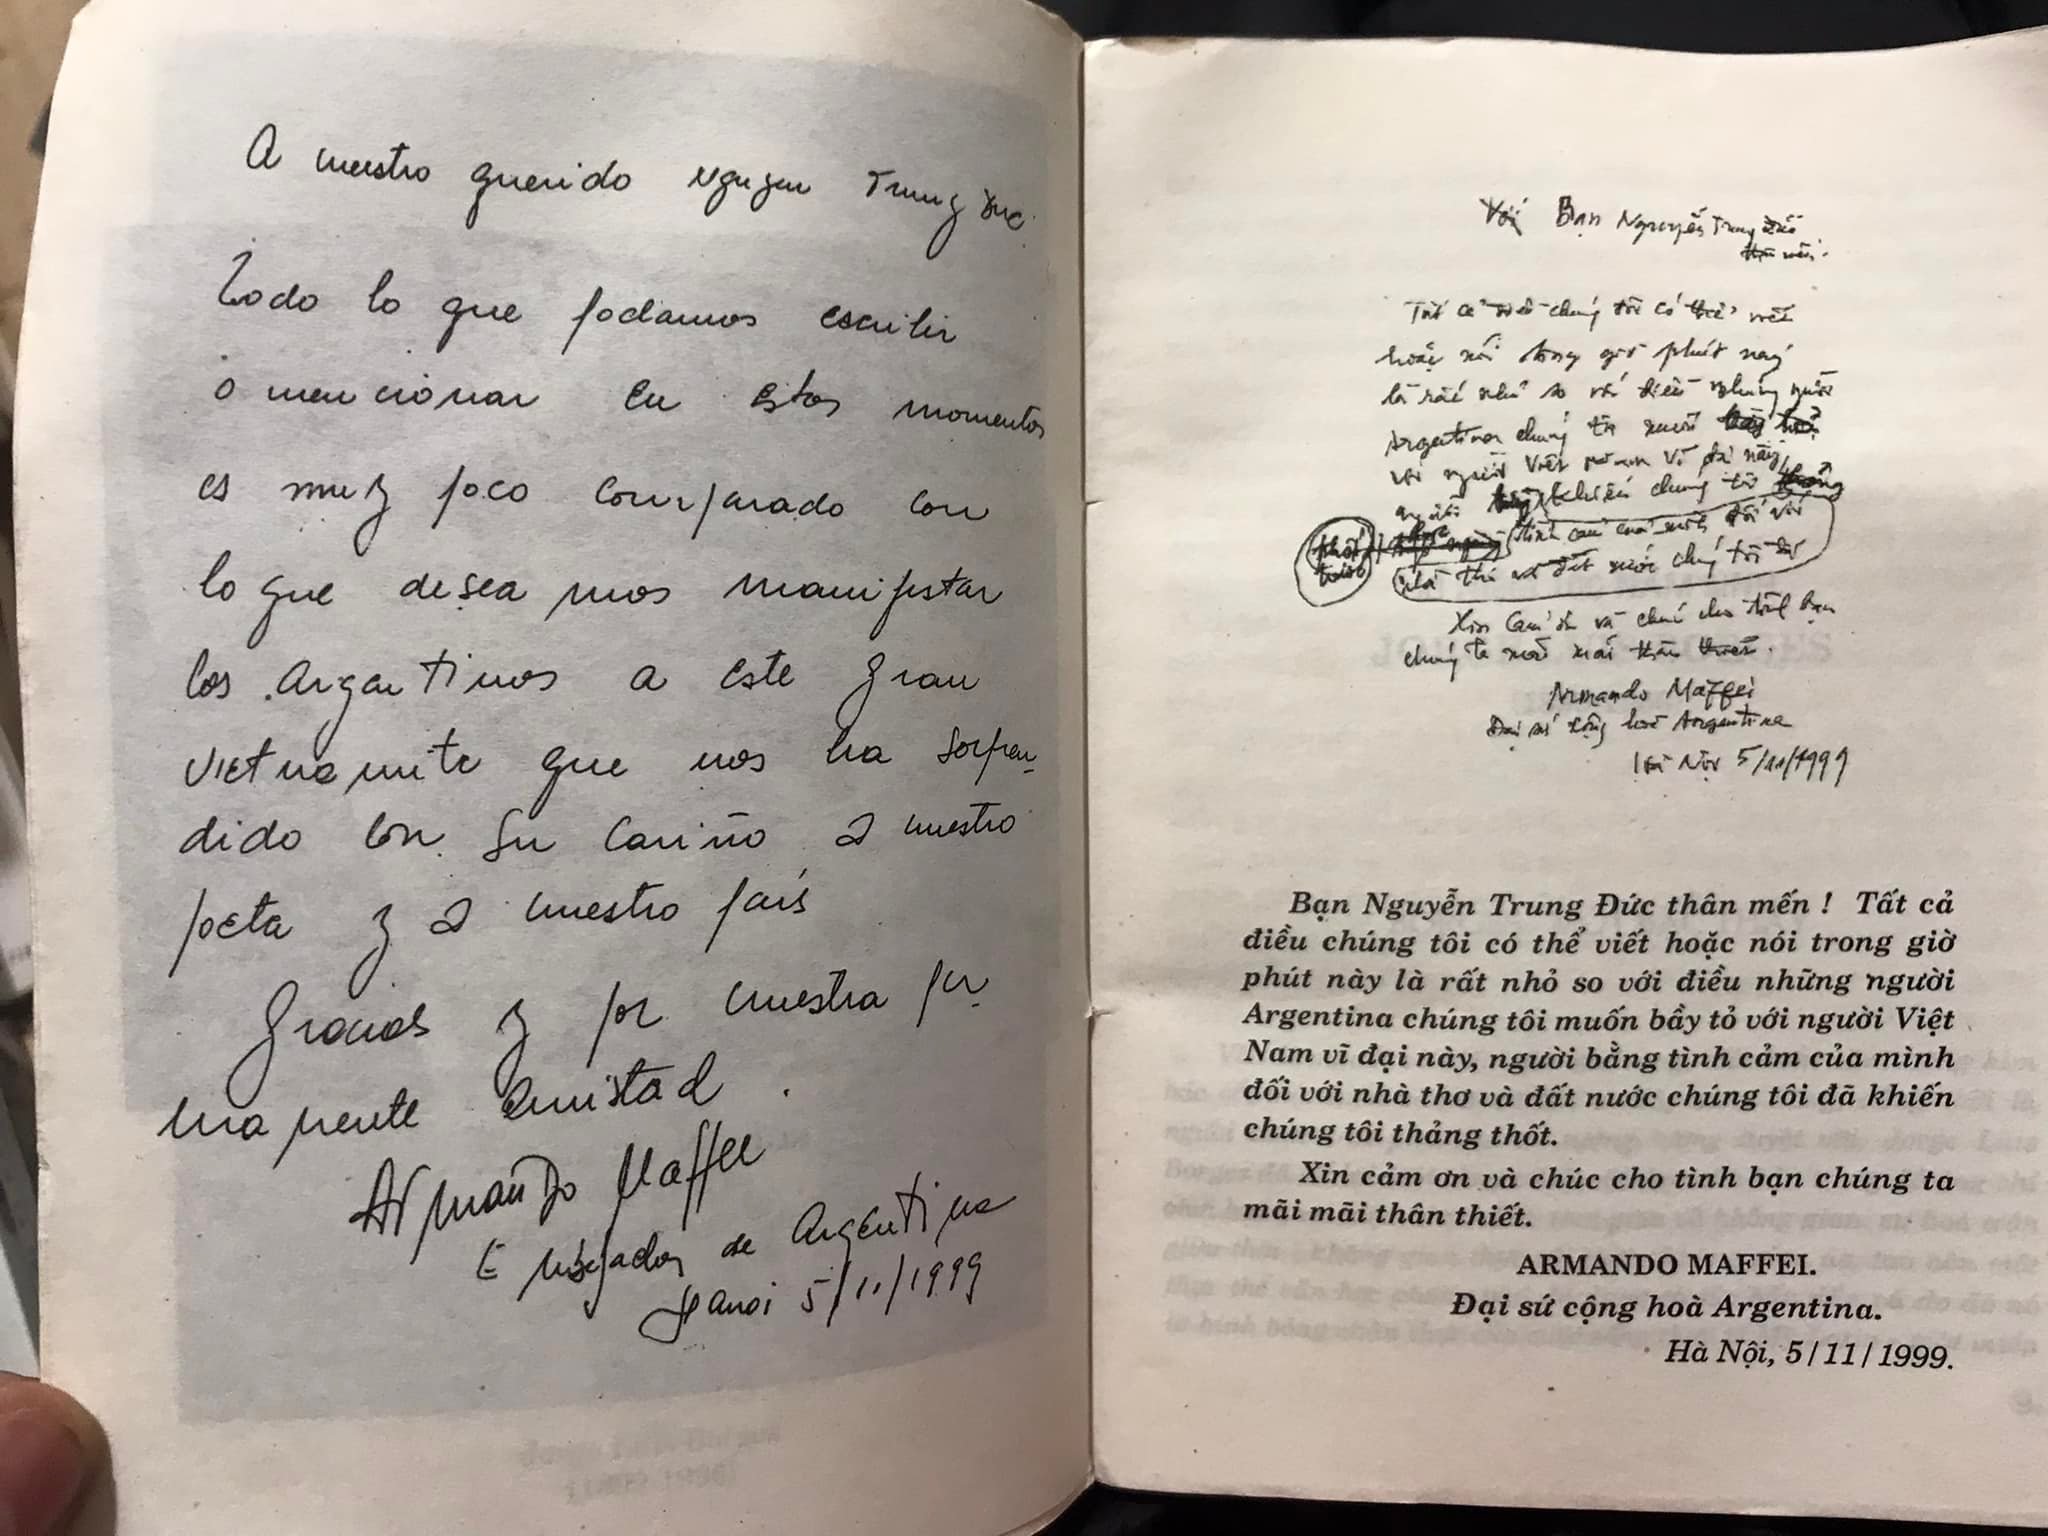 A nuestro querido Nguyen Trung Duc
Todo lo que podamos escribir
o mencionar en estos momentos
es muy poco comparado con
lo que deseamos manifestar
los Argentinos a este gran
vietnamita que nos ha sorpren_
dido con su cariño a nuestro
poeta y a nuestro país
Gracias y por nuestra per_
manente amistad.
Armando Maffei
Embajador de Argentina
Hanoi 5/11/1999
Với Bạn Nguyễn Trung Đức
thân mến.
Tất cả điều chúng tôi có thể viết
hoặc nói trong giờ phút này
là rất nhỏ so với điều những người
Argentina chúng tôi muốn
với người Việt Nam vĩ đại này,
người khiến chúng tôi
tình cảm của mình đối với
nhà thơ và đất nước chúng tôi đã
Xin cảm ơn và chúc cho tình bạn
chúng ta mãi mãi thân thiết.
Armando Maffei
Đại sứ cộng hoà Argentina
Hà Nội 5/11/1999
Bạn Nguyễn Trung Đức thân mến ! Tất cả
điều chúng tôi có thể viết hoặc nói trong giờ
phút này là rất nhỏ so với điều những người
Argentina chúng tôi muốn bầy tỏ với người Việt
Nam vĩ đại này, người bằng tình cảm của mình
đối với nhà thơ và đất nước chúng tôi đã khiến
chúng tôi thảng thốt.
Xin cảm ơn và chúc cho tình bạn chúng ta
mãi mãi thân thiết.
ARMANDO MAFFEI.
Đại sứ cộng hoà Argentina.
Hà Nội, 5/11/1999.